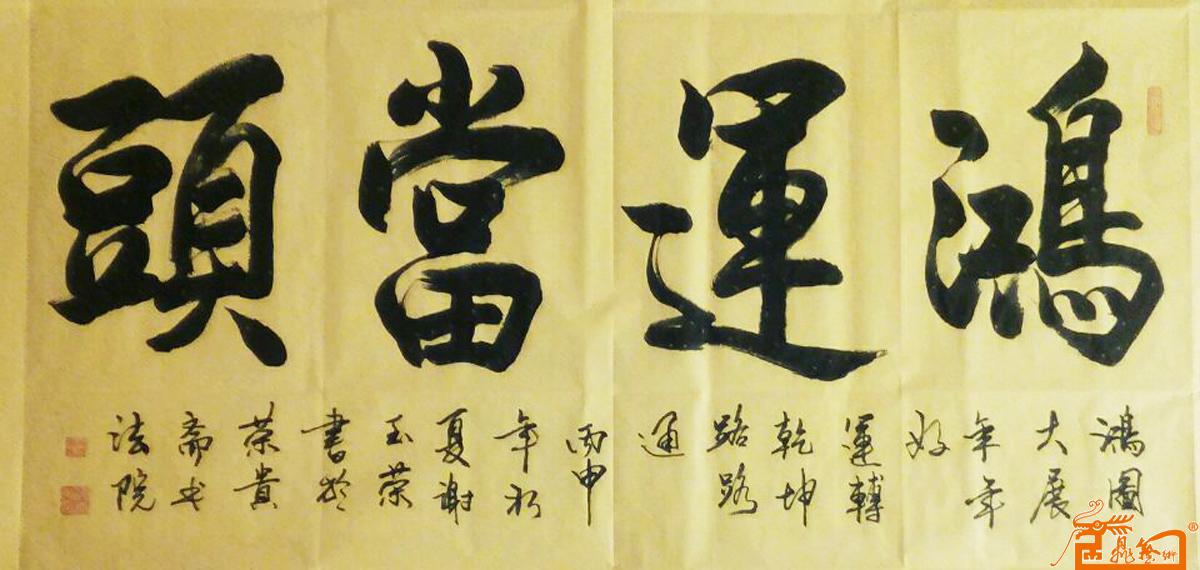 鴻運當頭
鴻圖
大展
年年
好
運轉
乾坤
路路
通
丙申
年初
夏謝
玉荣
書於
荣貴
斋书
法院